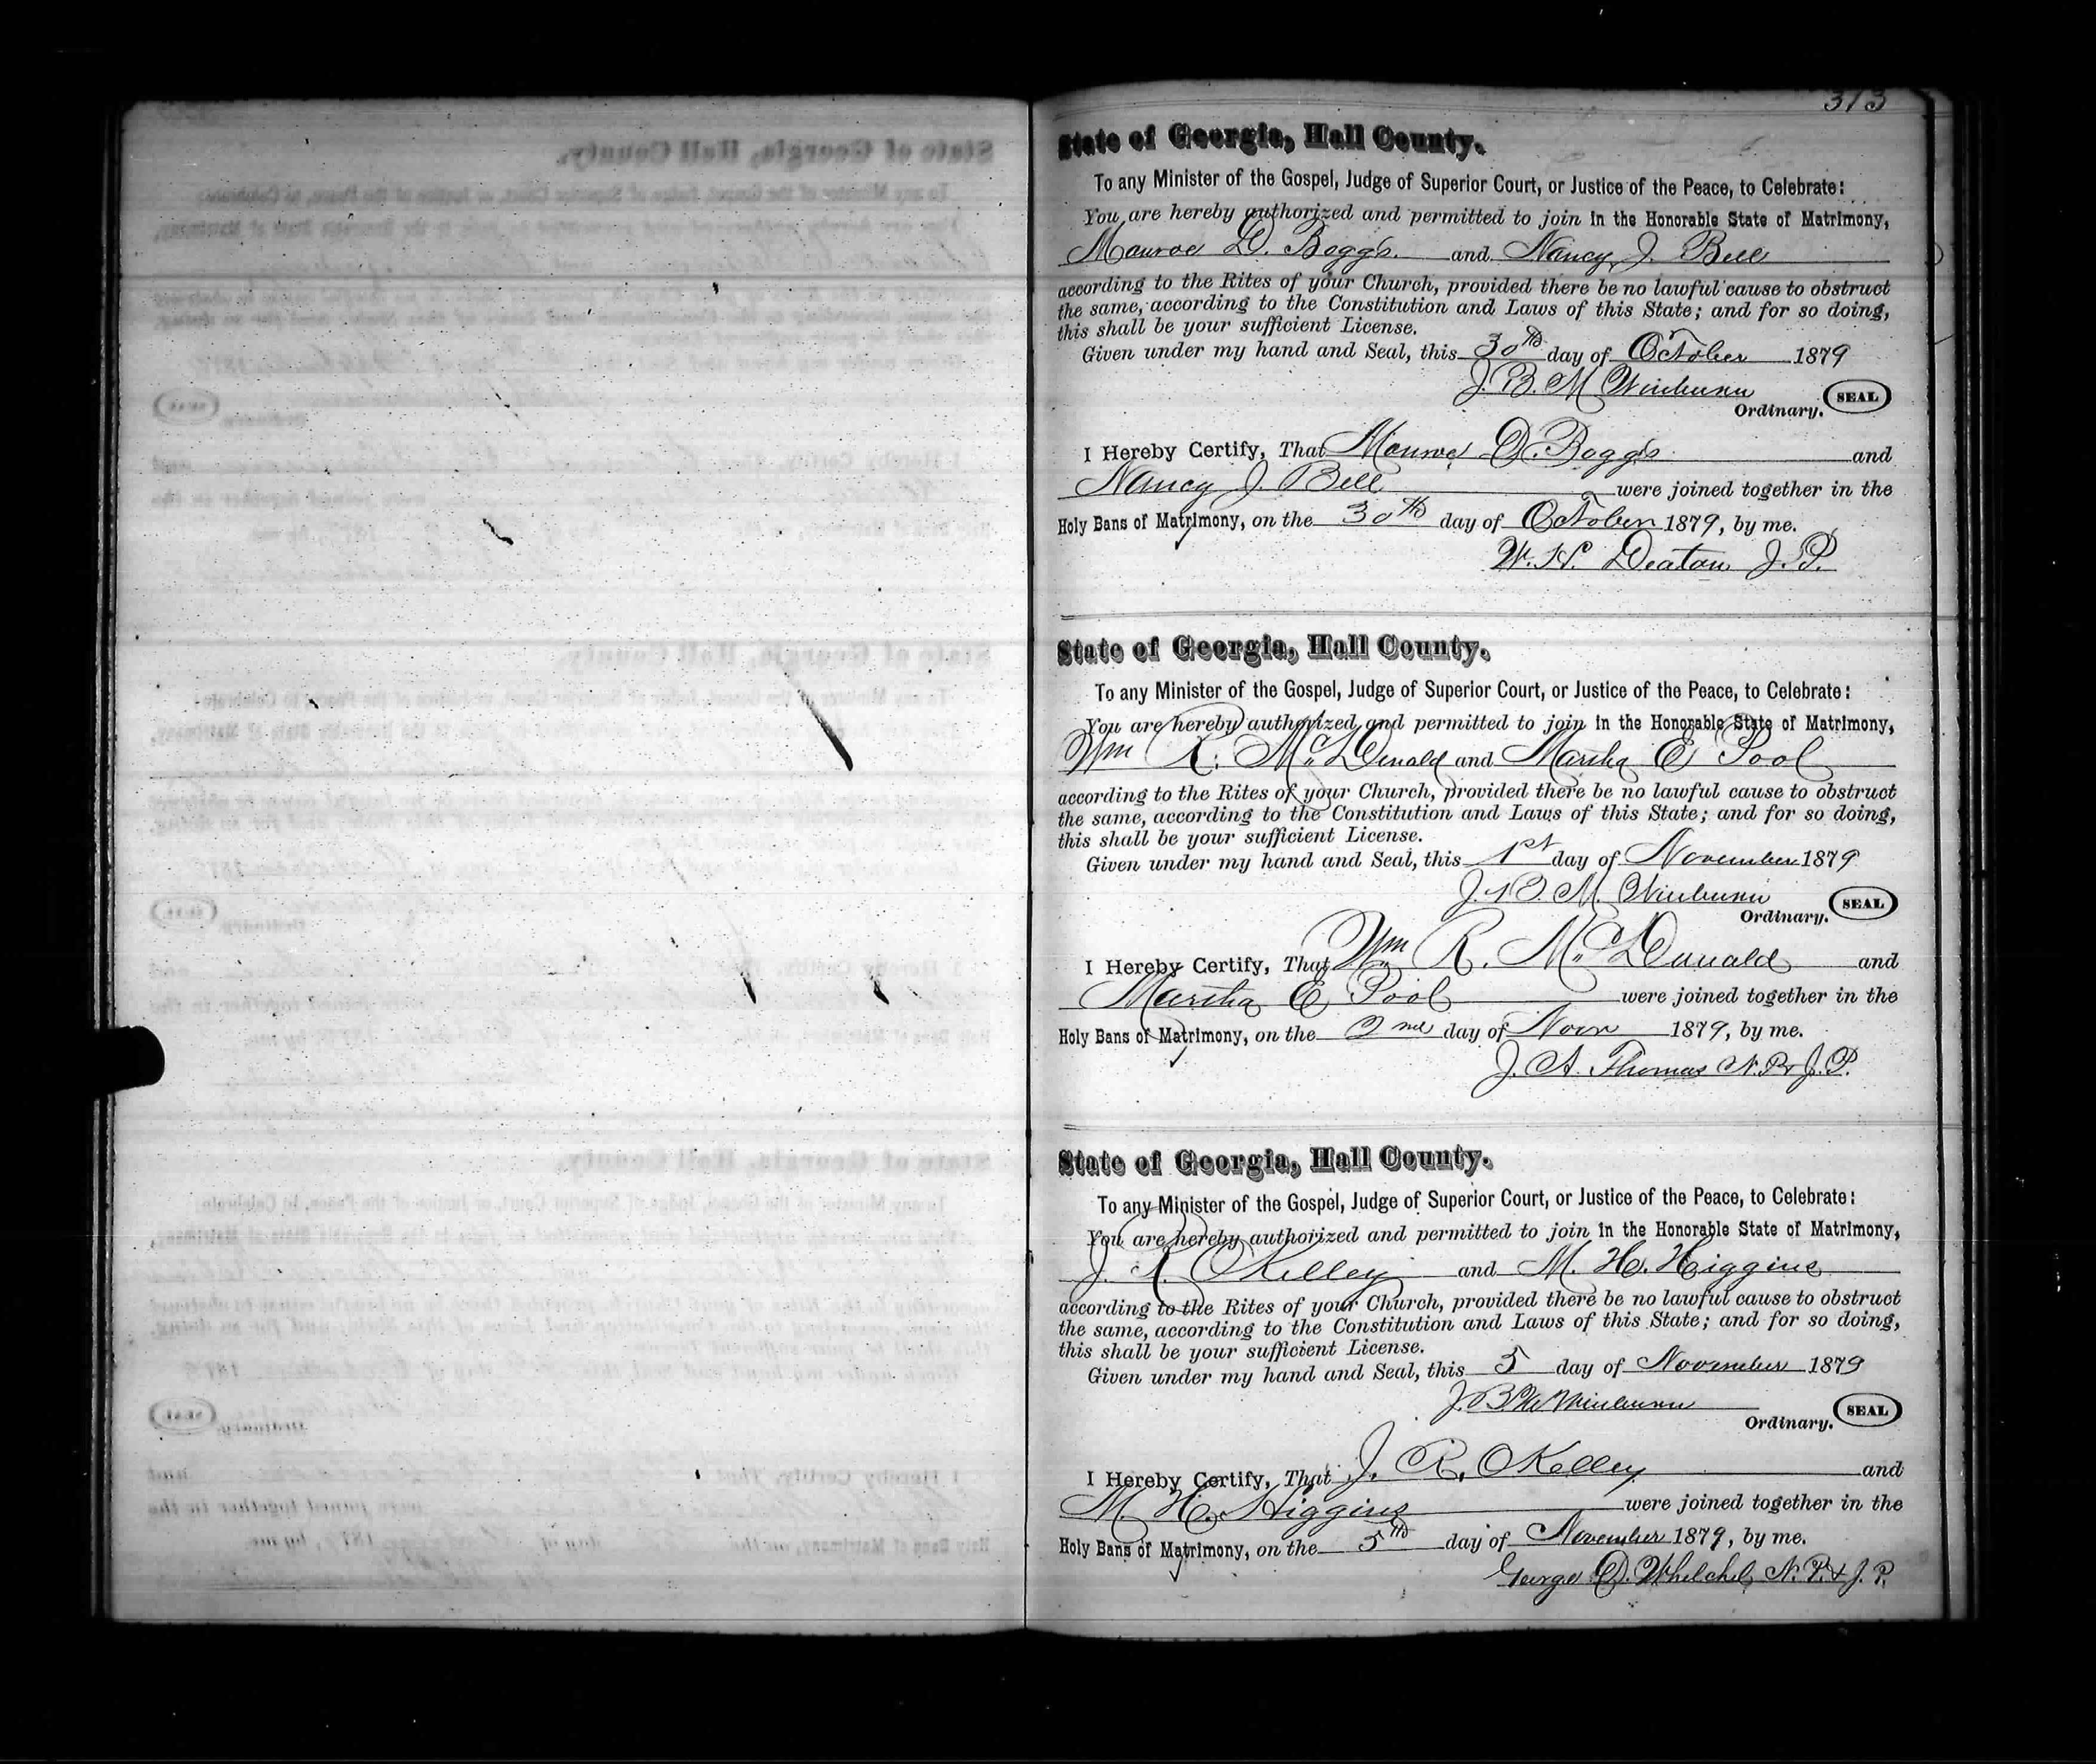 313
State of Georgia, Hall County.
To any Minister of the Gospel, Judge of Superior Court, or Justice of the Peace, to Celebrate:
You are hereby authorized and permitted to join in the Honorable State of Matrimony,
Monroe D. Boggs and Nancy J. Bell
according to the Rites of your Church, provided there be no lawful cause to obstruct
the same, according to the Constitution and Laws of this State; and for so doing,
this shall be your sufficient License.
Given under my hand and Seal, this 30th day of October 1879
J. B. M. Winburn SEAL
Ordinary.
I Hereby Certify, That Monroe D. Boggs and
Nancy J. Bell were joined together in the
Holy Bans of Matrimony, on the 30th day of October 1879, by me.
W. H. Deaton J. P.
State of Georgia, Hall County.
To any Minister of the Gospel, Judge of Superior Court, or Justice of the Peace, to Celebrate:
You are hereby authorized and permitted to join in the Honorable State of Matrimony,
Wm R. McDonald and Martha E Pool
according to the Rites of your Church, provided there be no lawful cause to obstruct
the same, according to the Constitution and Laws of this State; and for so doing,
this shall be your sufficient License.
Given under my hand and Seal, this 1st day of November 1879
J. B. M. Winburn SEAL
Ordinary.
I Hereby Certify, That Wm R. McDonald and
Martha E Pool were joined together in the
Holy Bans of Matrimony, on the 2nd day of Novr 1879, by me.
J. A. Thomas N. P. & J. P.
State of Georgia, Hall County.
To any Minister of the Gospel, Judge of Superior Court, or Justice of the Peace, to Celebrate:
You are hereby authorized and permitted to join in the Honorable State of Matrimony,
J. R. OKelley and M. H. Higgins
according to the Rites of your Church, provided there be no lawful cause to obstruct
the same, according to the Constitution and Laws of this State; and for so doing,
this shall be your sufficient License.
Given under my hand and Seal, this 5 day of November 1879
J. B. M. Winburn SEAL
Ordinary.
I Hereby Certify, That J. R. OKelley and
M. H. Higgins were joined together in the
Holy Bans of Matrimony, on the 5th day of November 1879, by me.
George D. Whelchel N. P. & J. P.